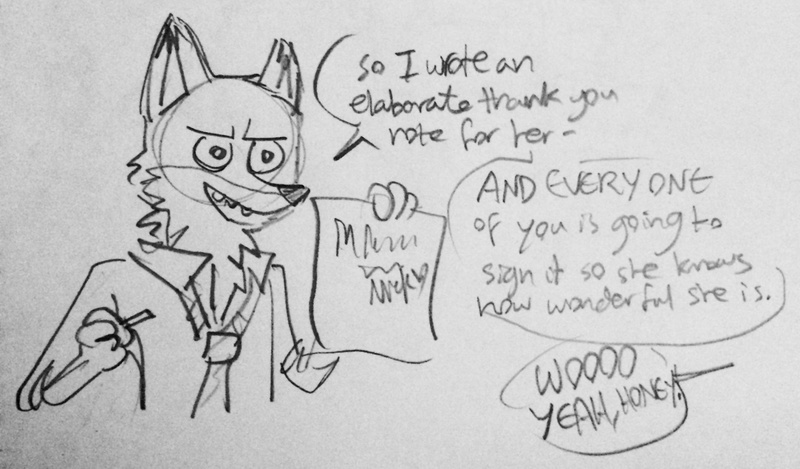 so I wrote an
elaborate thank you
note for her -
AND EVERYONE
of you is going to
sign it so she knows
how wonderful she is.
WOOOO
YEAH, HONEY!
Nicky